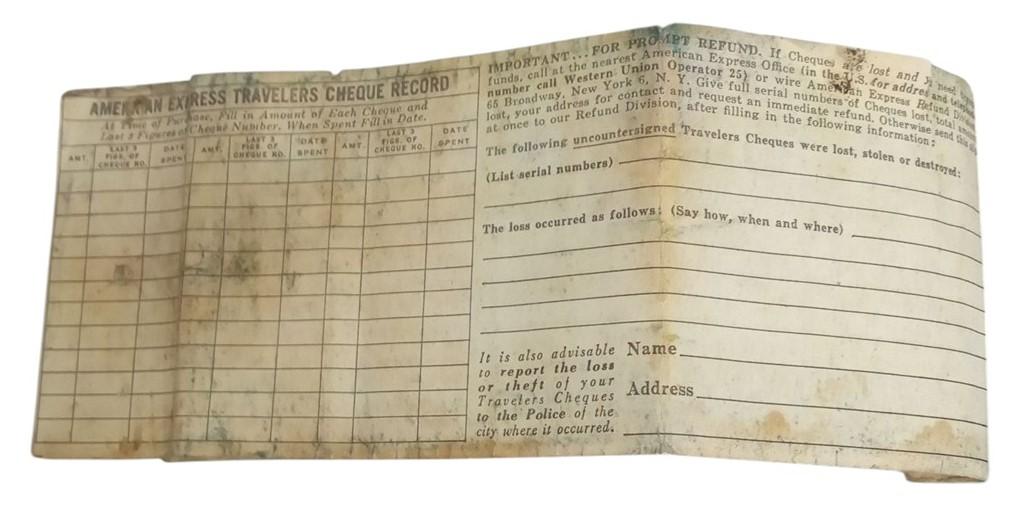 AMERICAN EXPRESS TRAVELERS CHEQUE RECORD
At Time of Purchase, Fill in Amount of Each Cheque and
Last 3 Figures of Cheque Number. When Spent Fill in Date.
AMT. LAST 3 FIGS. OF CHEQUE NO. DATE SPENT AMT. LAST 3 FIGS. OF CHEQUE NO. DATE SPENT AMT. LAST 3 FIGS. OF CHEQUE NO. DATE SPENT
IMPORTANT... FOR PROMPT REFUND. If Cheques are lost and you need
funds, call at the nearest American Express Office (in the U.S. for address and
number call Western Union Operator 25) or wire American Express Refund Division
65 Broadway, New York 6, N. Y. Give full serial numbers of Cheques lost, total amount
lost, your address for contact and request an immediate refund. Otherwise send this
at once to our Refund Division, after filling in the following information:
The following uncountersigned Travelers Cheques were lost, stolen or destroyed:
(List serial numbers)
The loss occurred as follows: (Say how, when and where)
It is also advisable
to report the loss
or theft of your
Travelers Cheques
to the Police of the
city where it occurred.
Name
Address